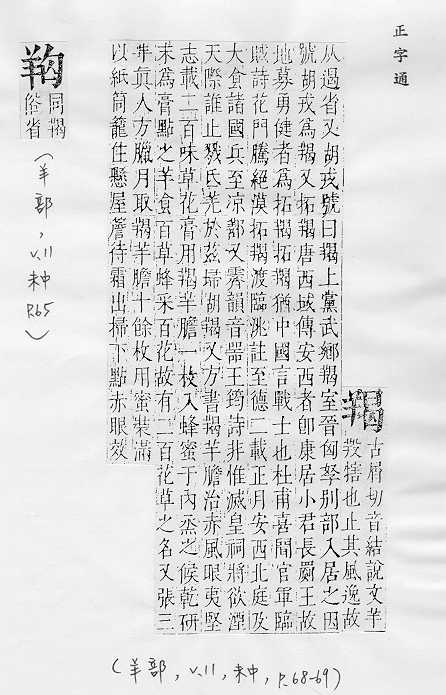 正字通
羯
古屑切音結說文羊
羖犗也止其風逸故
从遏省又胡戎號曰羯上黨武鄉羯室晉匈孥別部入居之因
號胡戎爲羯又拓羯唐西域傳安西者卽康居小君長罽王故
地募勇健者爲拓羯拓羯猶中國言戰士也杜甫喜聞官軍臨
賊詩花門騰絕漠拓羯渡臨洮註至德二載正月安西北庭及
大食諸國兵至凉鄯又霽韻音器王筠詩非惟滅皇祠將欲湮
天際誰止戮氐羌於茲埽胡羯又方書羯羊膽治赤風眼夷堅
志載二百味草花膏用羯羊膽一枚入蜂蜜于內烝之候乾研
末爲膏點之羊食百草蜂采百花故有二百花草之名又張三
丰眞人方臘月取羯羊膽十餘枚用蜜裝滿
以紙筒籠住懸屋簷待霜出掃下點赤眼效
(羊部, v.11, 未中, p.68-69)
同羯
俗省
(羊部, v.11 未中 p.65)